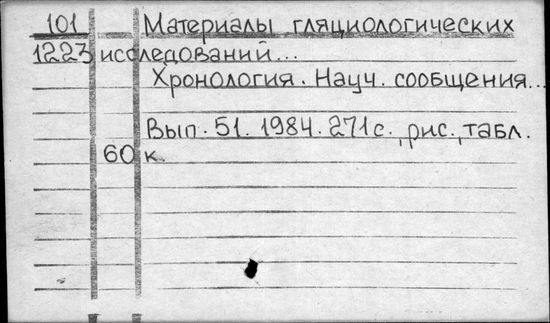 101 Материалы гляциологических
1223 исследований...
Хронология. Науч. сообщения...
Вып. 51. 1984. 271с., рис., табл.
60 к.